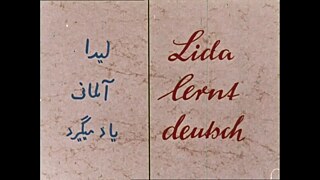 لیدا
آلمانی
یاد میگیرد
Lida
lernt
deutsch